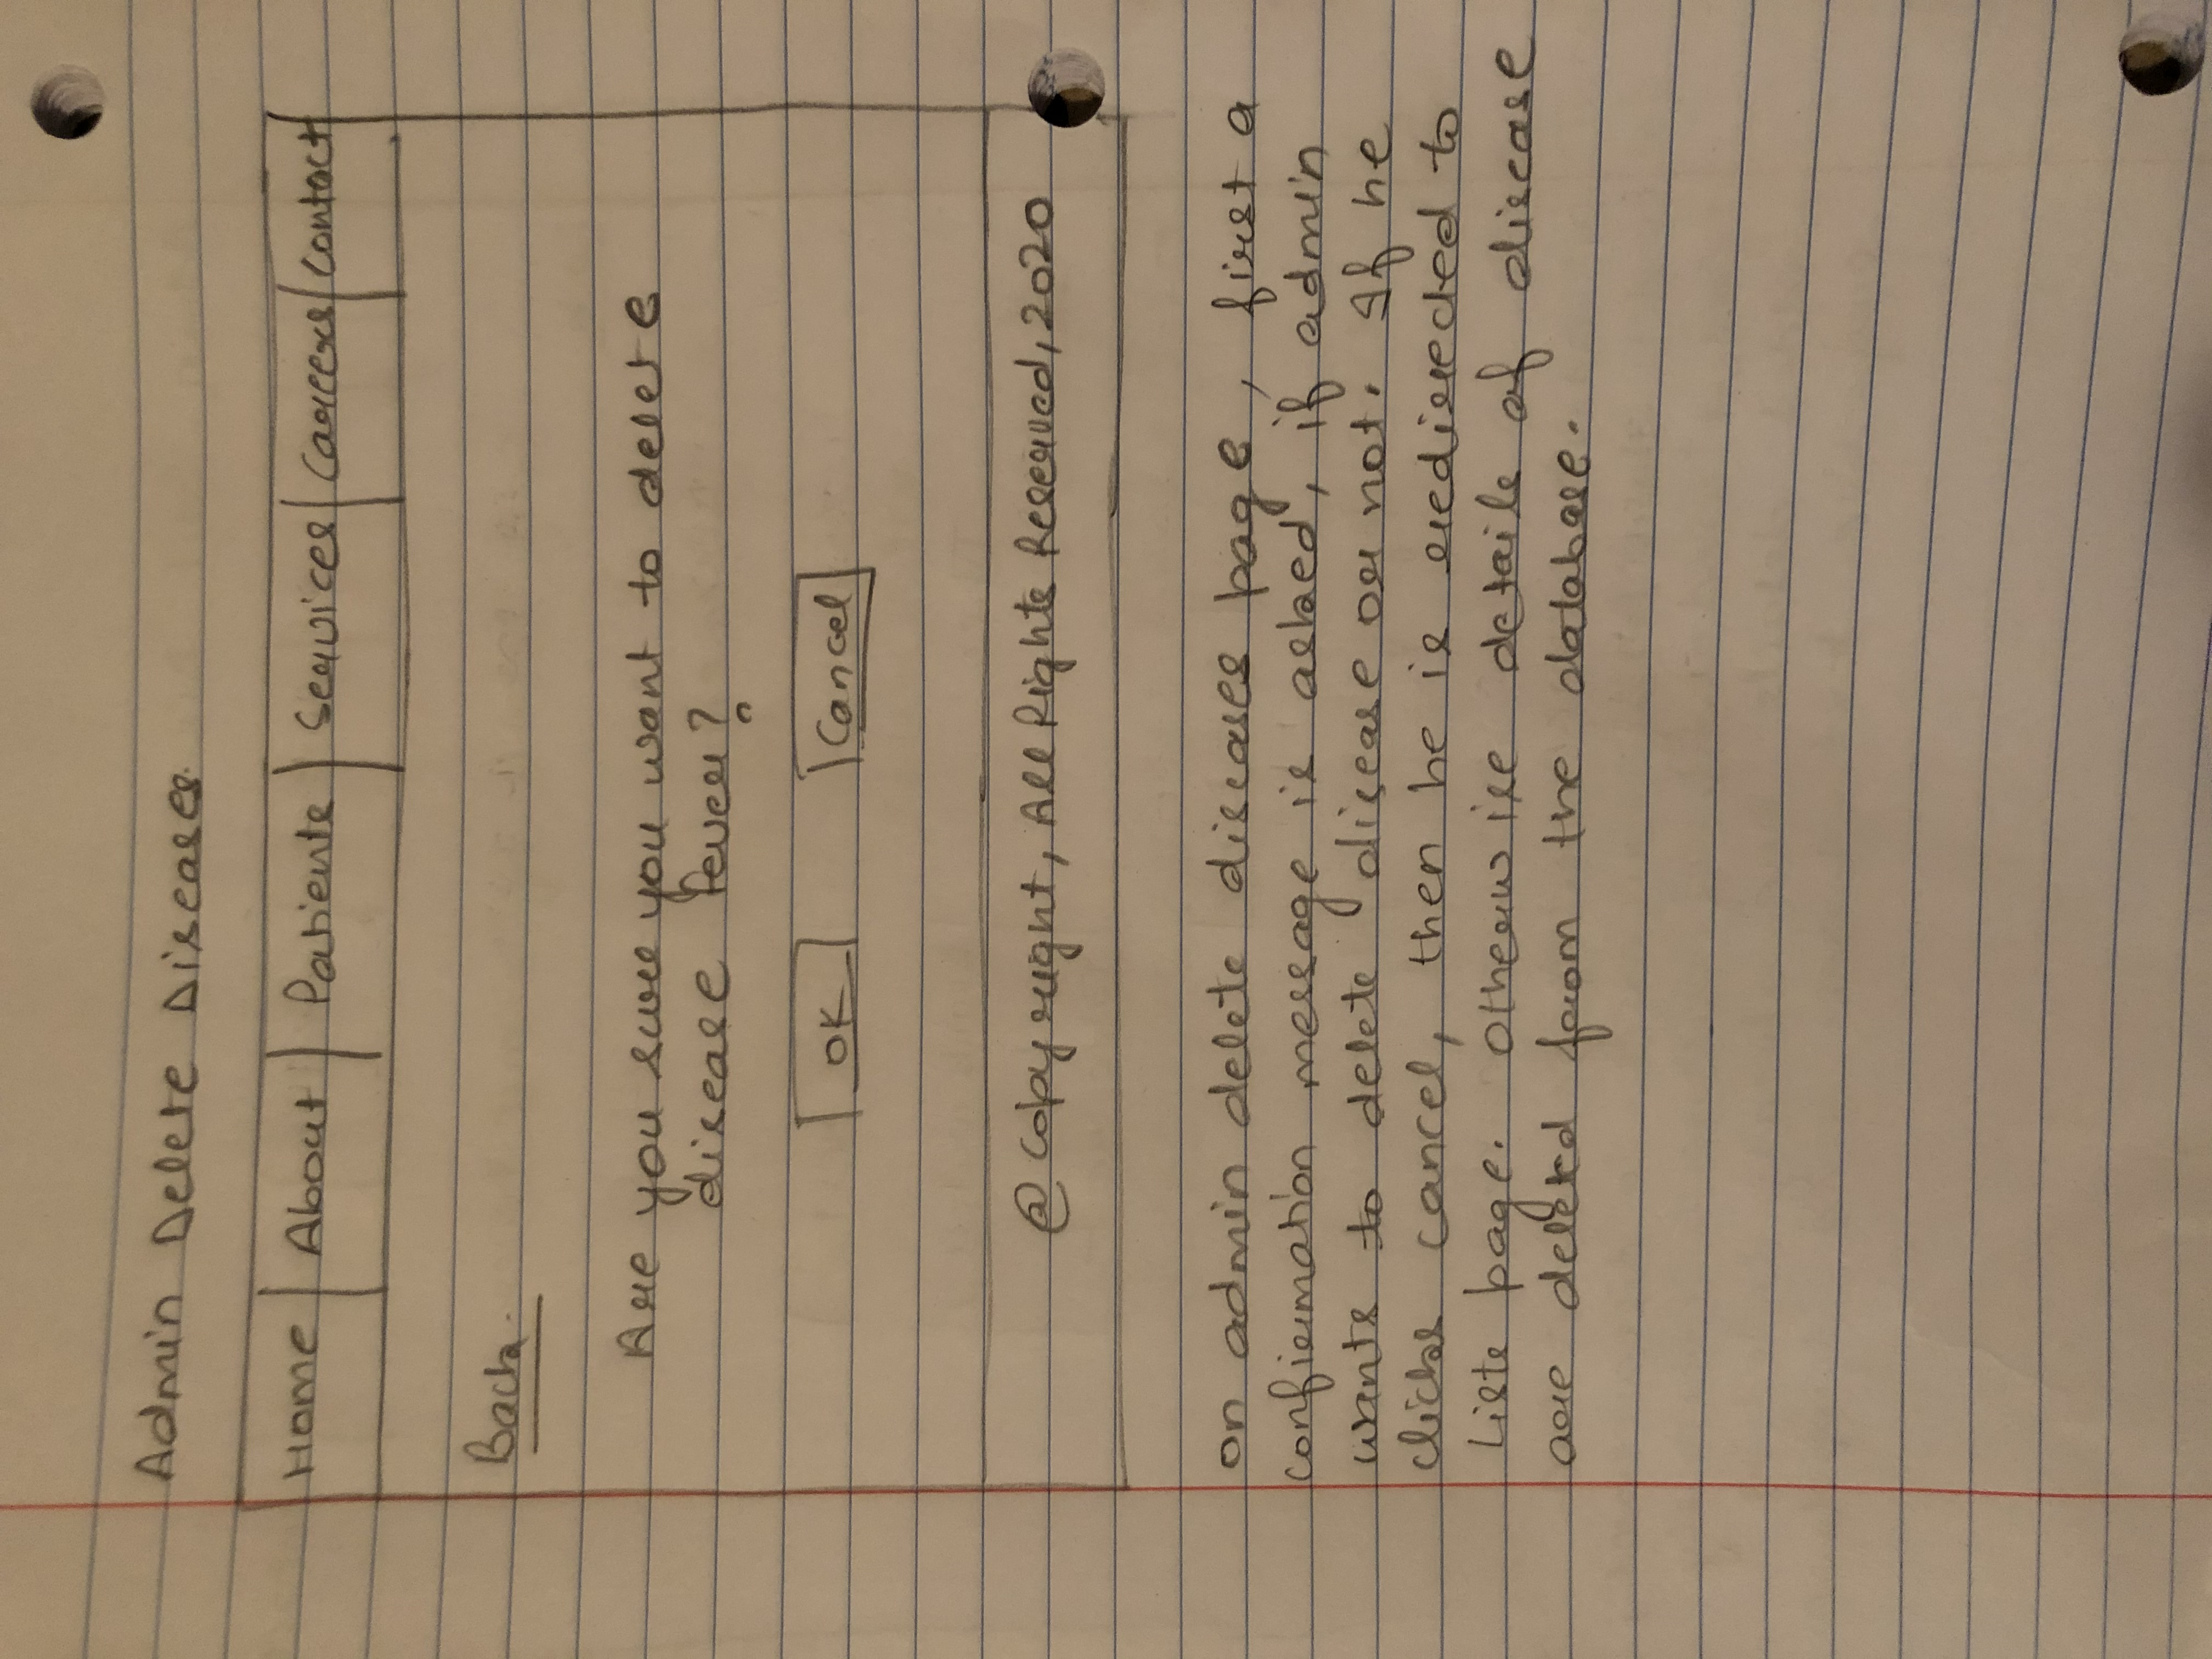 Admin Delete Diseases.
Home About Patients Services Careers Contact
Back.
Are you sure you want to delete
disease fever?
OK Cancel
@ Copyright, All Rights Reserved, 2020
on admin delete diseases page, first a
confirmation message is asked, if admin
wants to delete disease or not. If he
clicks cancel, then he is redirected to
Lists page. Otherwise details of disease
are deleted from the database.